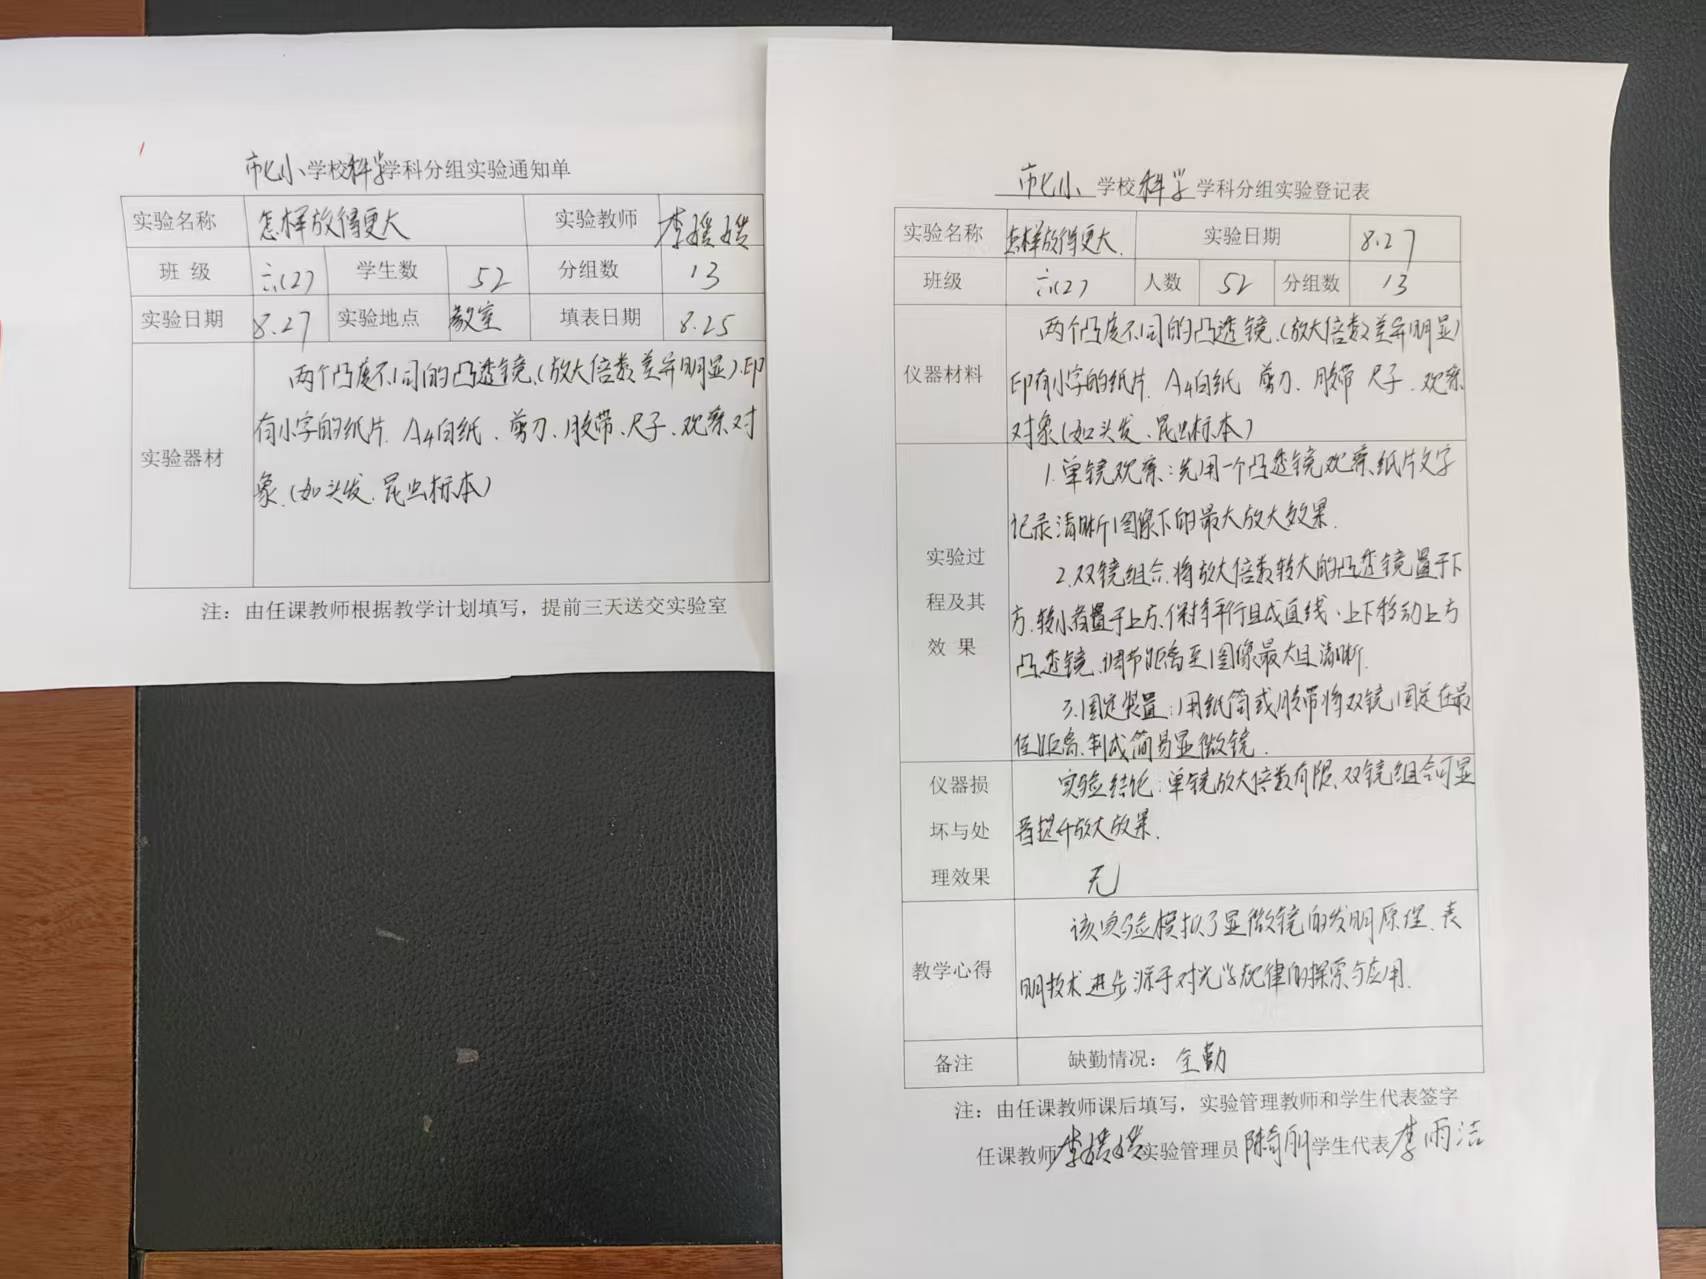 市化小学校科学学科分组实验通知单
实验名称 怎样放得更大 实验教师 李媛媛
班 级 六(2) 学生数 52 分组数 13
实验日期 8.27 实验地点 教室 填表日期 8.25
实验器材
两个凸度不同的凸透镜(放大倍数差异明显)印
有小字的纸片、A4白纸、剪刀、胶带、尺子、观察对
象、(如头发、昆虫标本)
注：由任课教师根据教学计划填写，提前三天送交实验室
市化小 学校 科学 学科分组实验登记表
实验名称 怎样放得更大 实验日期 8.27
班级 六(2) 人数 52 分组数 13
仪器材料
两个凸度不同的凸透镜、(放大倍数差异明显)
印有小字的纸片、A4白纸 剪刀、胶带 尺子、观察
对象(如头发、昆虫标本)
实验过
程及其
效 果
1.单镜观察：先用一个凸透镜观察纸片文字
记录清晰图像下的最大放大效果.
2.双镜组合、将放大倍数较大的凸透镜置于下
方、较小者置于上方、保持平行且成直线、上下移动上方
凸透镜、调节距离至图像最大且清晰.
3.固定装置：用纸筒或胶带将双镜固定在最
佳距离、制成简易显微镜.
仪器损
坏与处
理效果
实验结论：单镜放大倍数有限、双镜组合可显
著提升放大效果.
无
教学心得
该实验模拟了显微镜的发明原理、表
明技术进步源于对光学规律的探索与应用.
备注 缺勤情况： 全勤
注：由任课教师课后填写，实验管理教师和学生代表签字
任课教师 李媛媛 实验管理员 学生代表 李雨洁